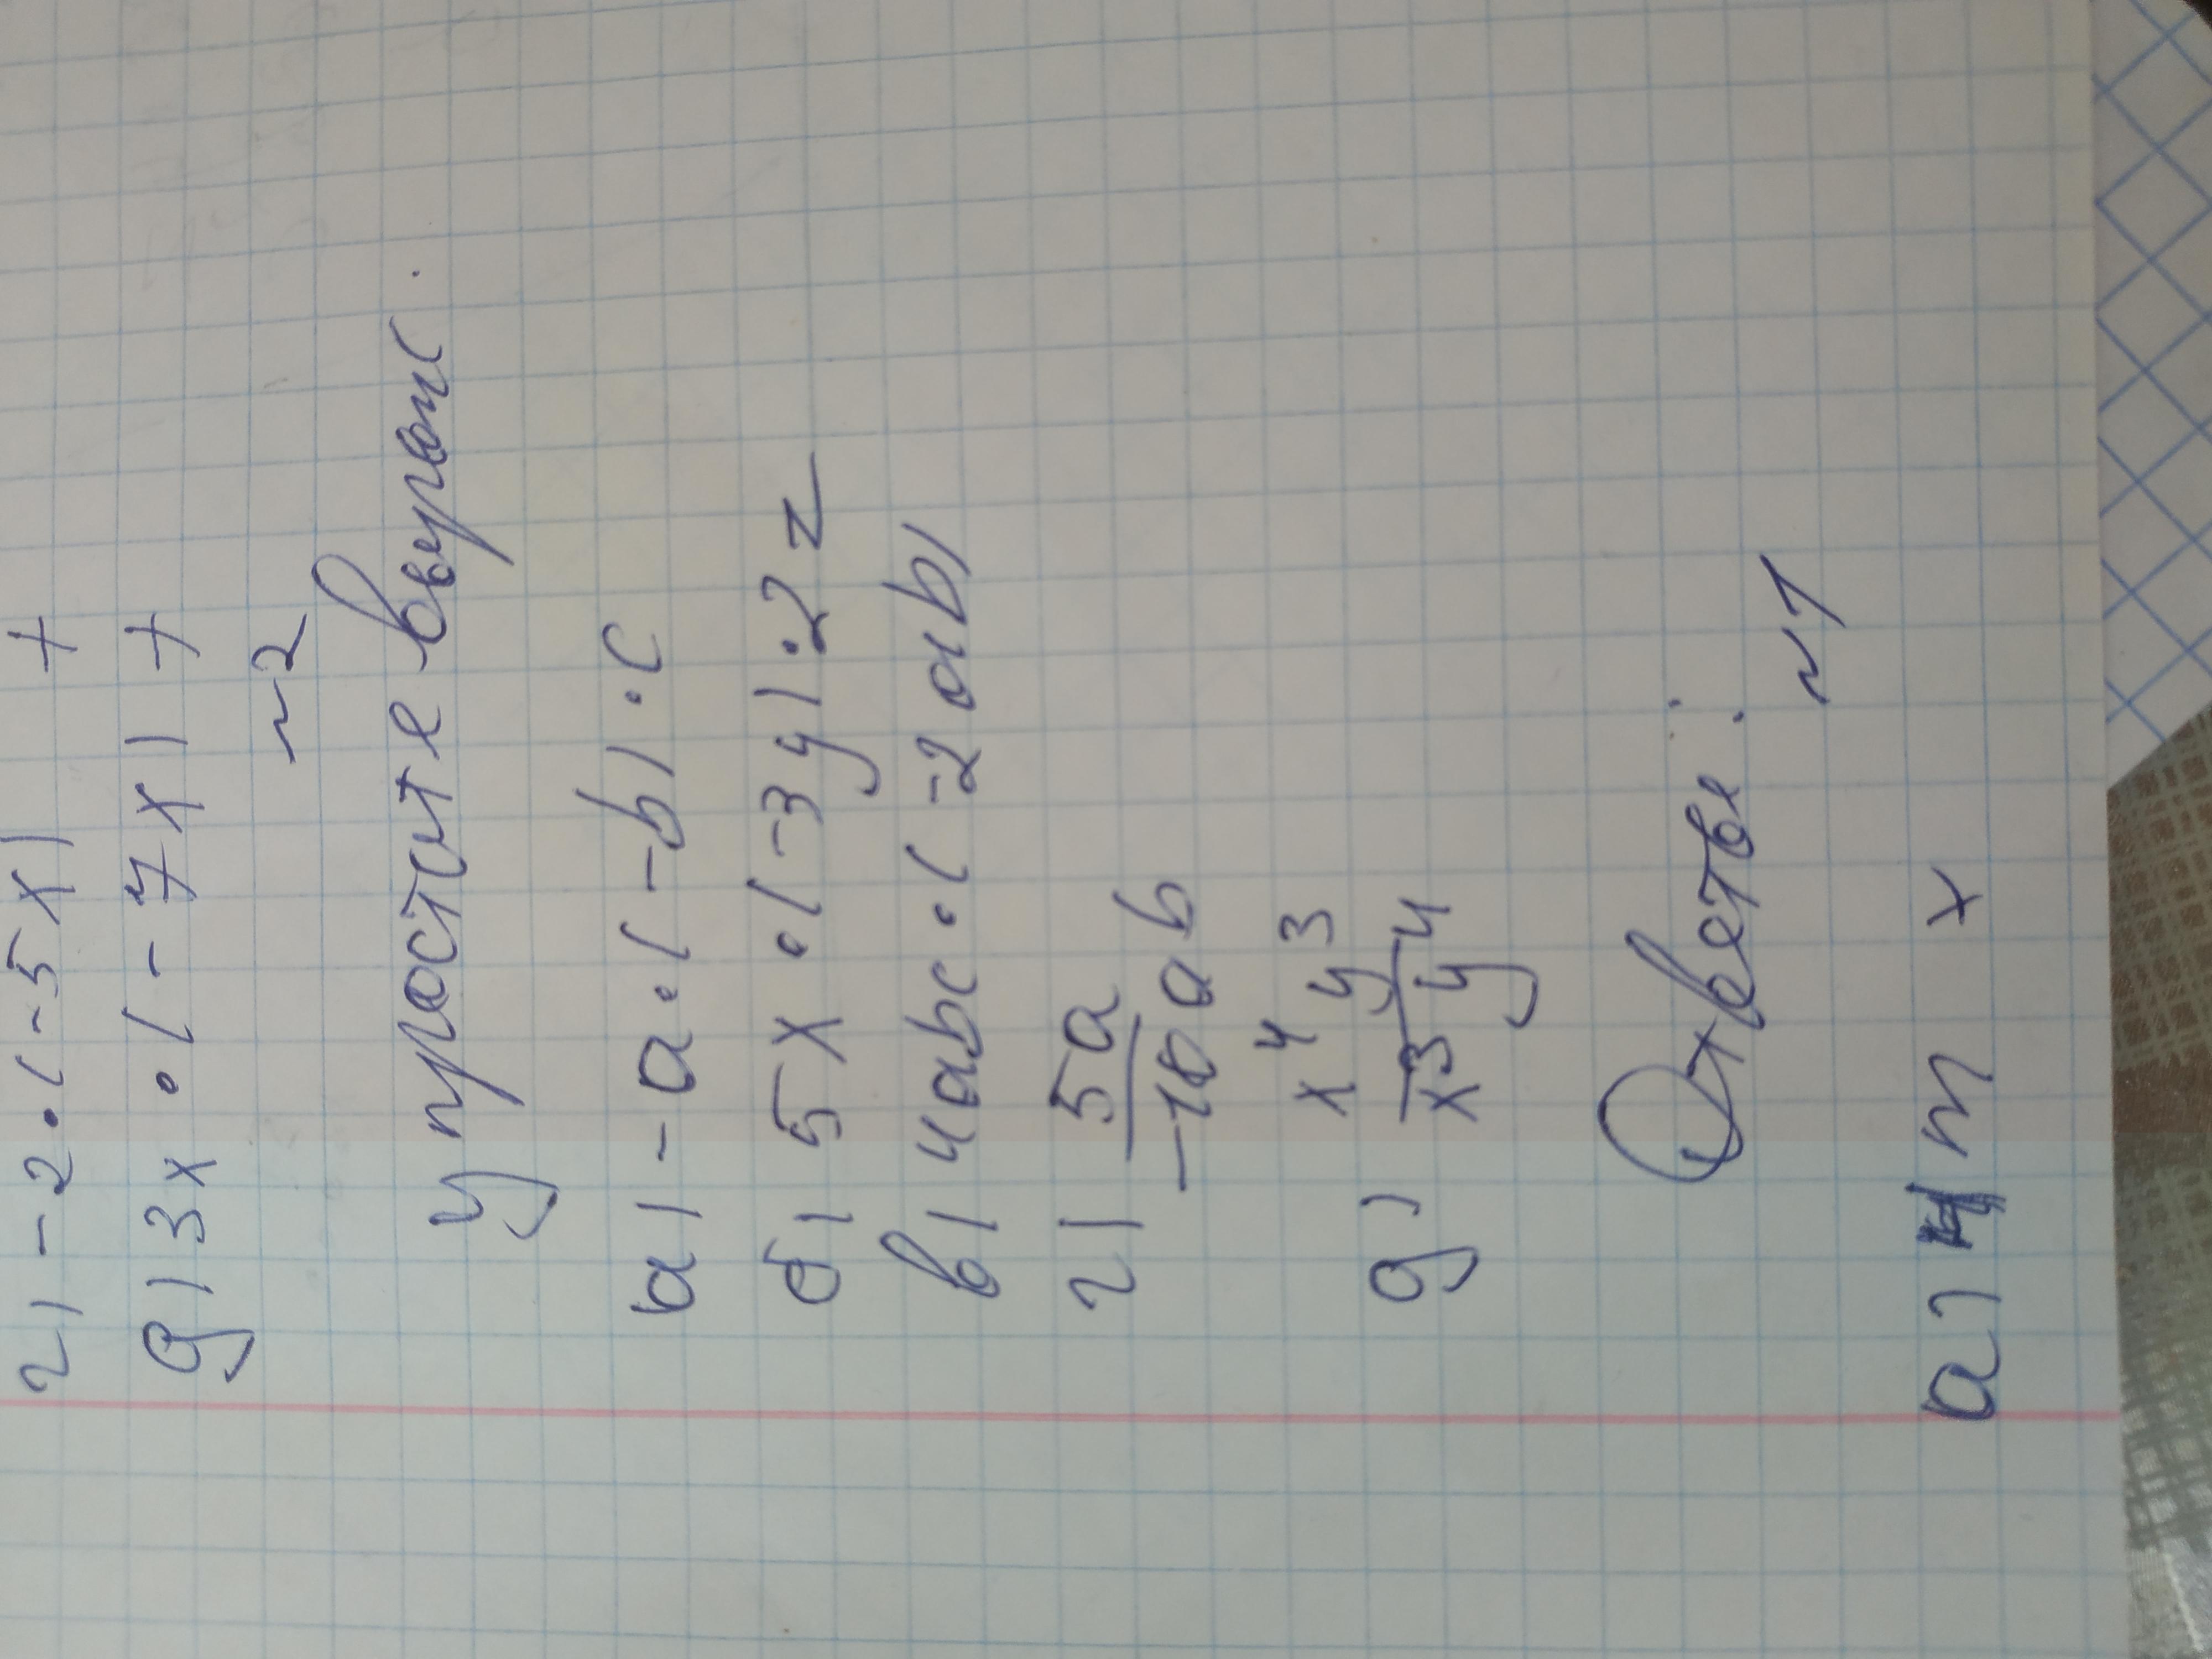 г) -2·(-5x) +
д) 3x·(-7x) +
~2
упростите выражс.
а) -a·(-b)·c
б) 5x·(-3y):2z
в) 4abc·(-2ab)
г) 5a/-10ab
д) x⁴y³/x³y⁴
Ответы:
~1
а) m x